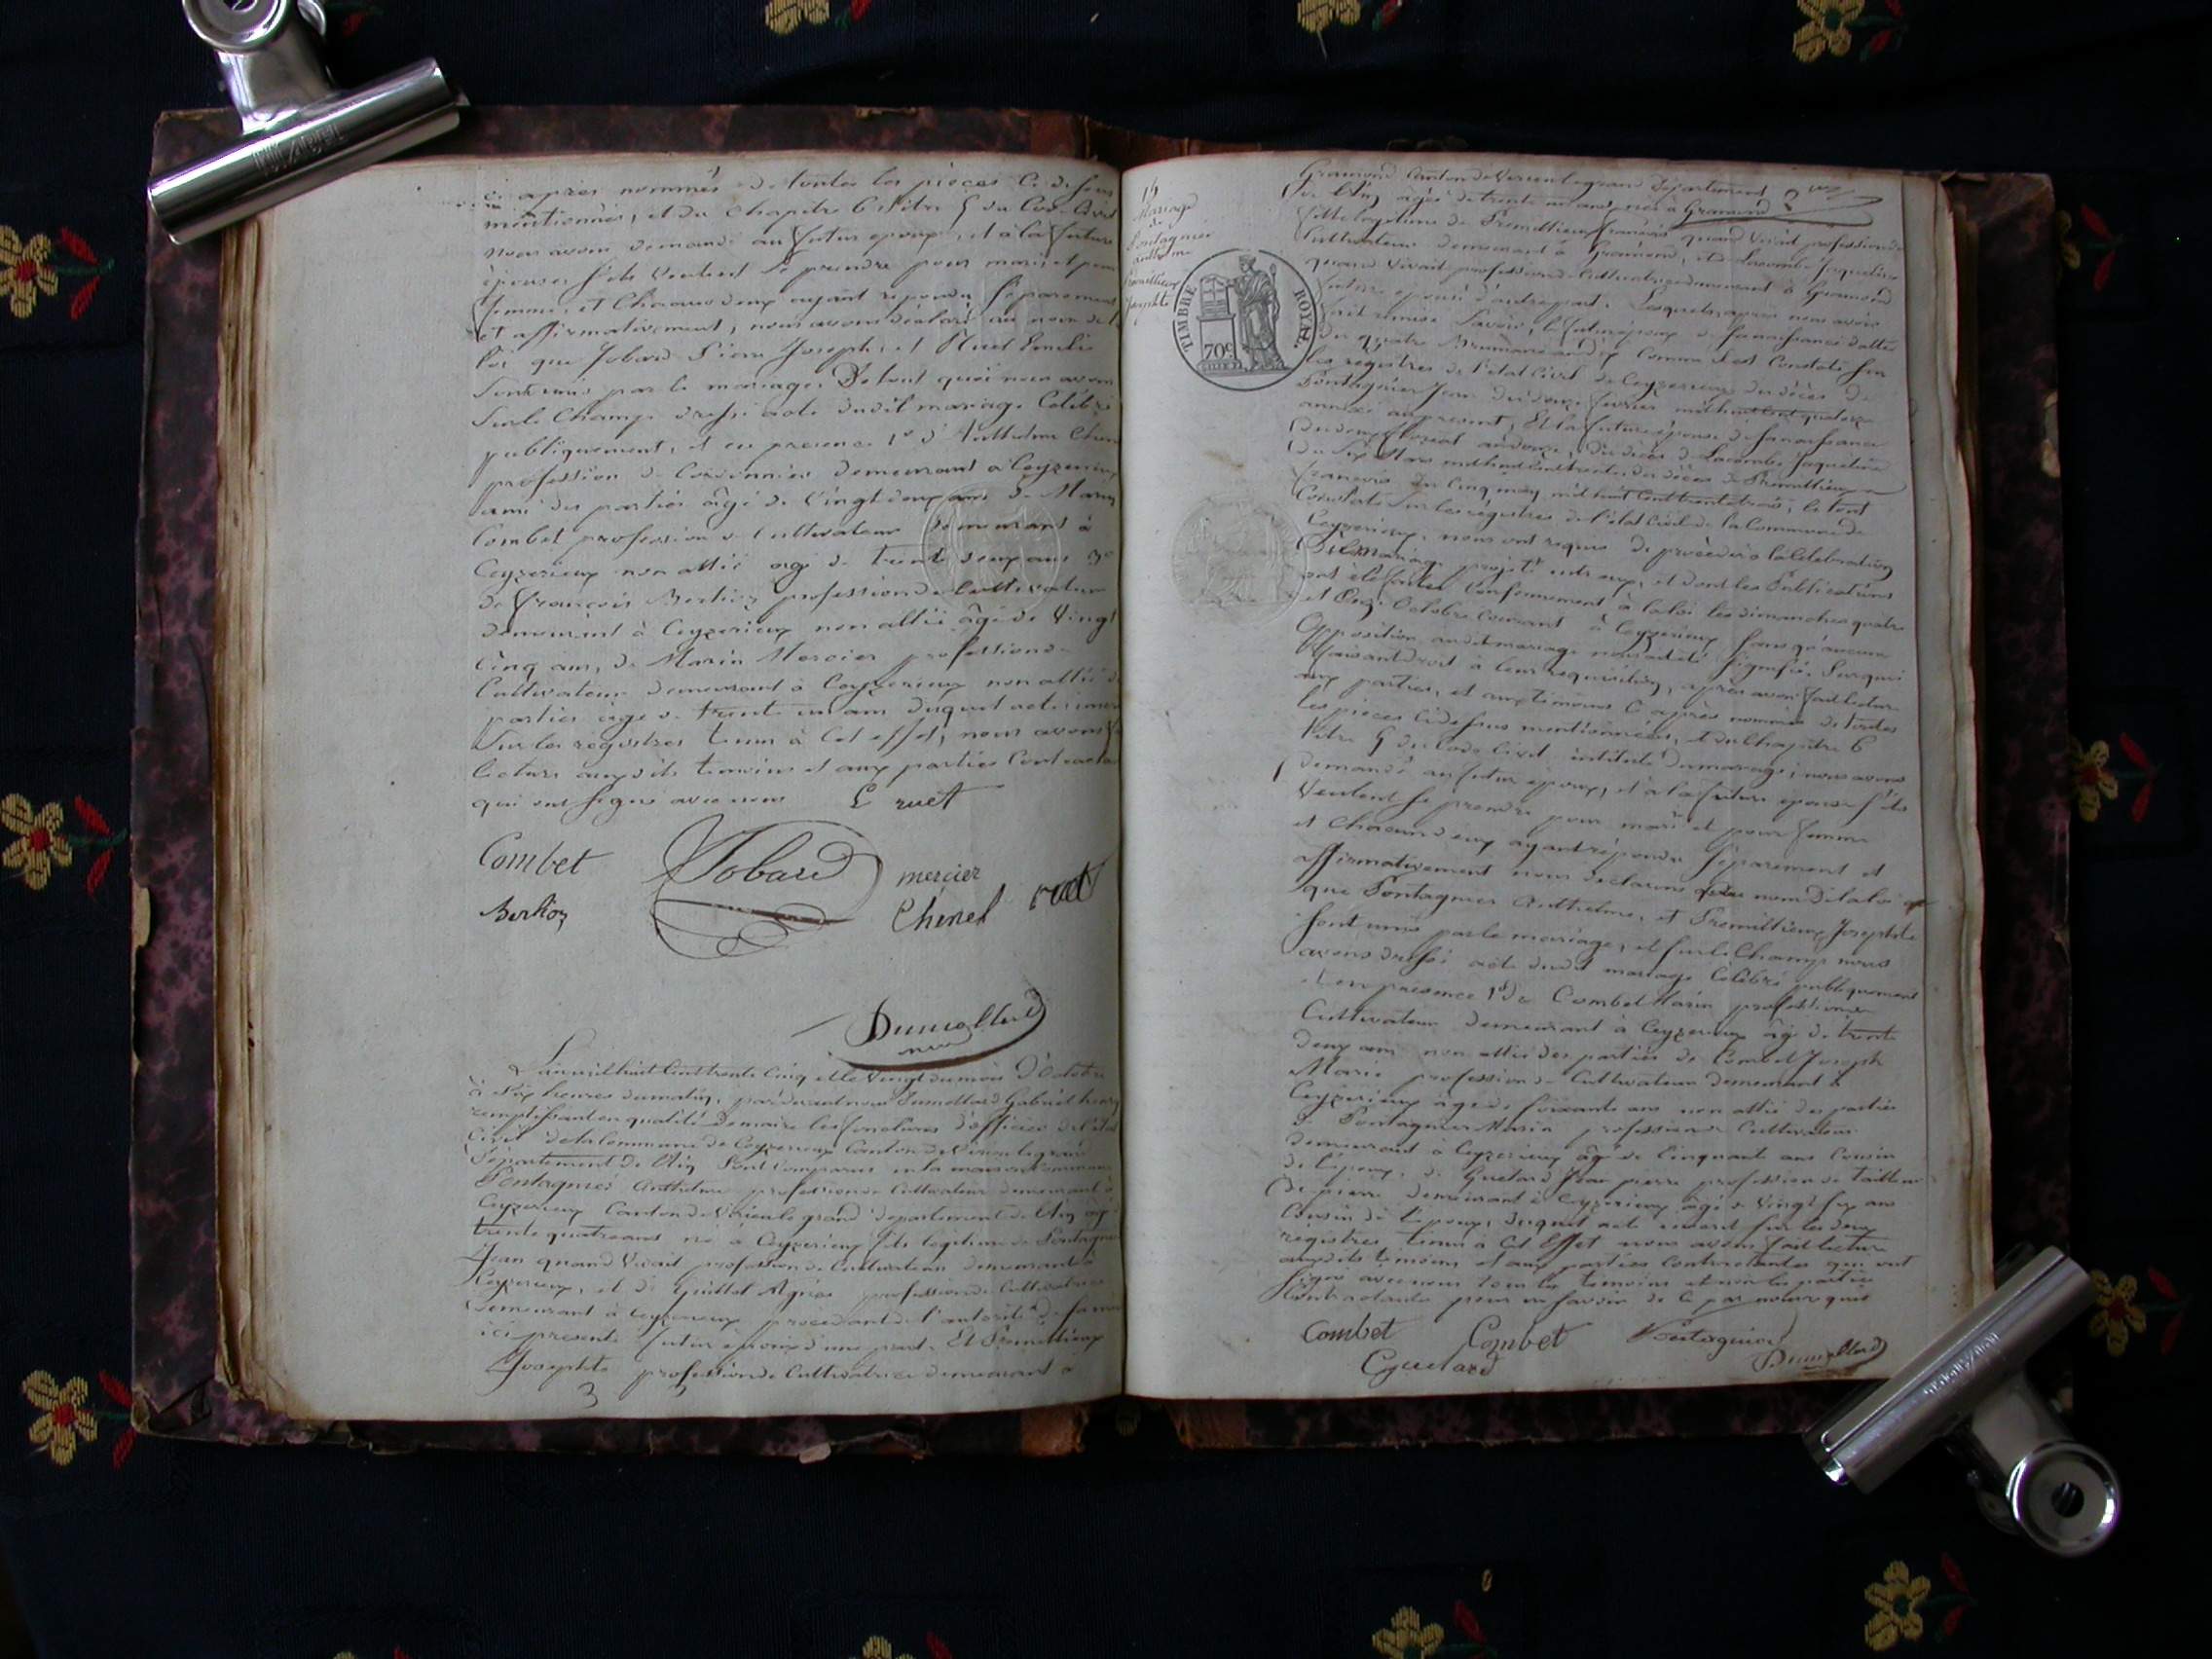 ci après nommés de toutes les pièces ci dessus
mentionnées, et du chapitre 6 titre 5 du Code Civil
nous avons demandé au futur epoux, et à la future
épouse s'ils veulent se prendre pour mari et pour
femme, et chacun d'eux ayant repondu séparement
et affirmativement, nous avons déclaré au nom de la
loi que Jobard Pierre Joseph, et Ruet Emelie
sont unis par le mariage. De tout quoi nous avons
sur le champ dressé acte dudit mariage Célébré
publiquement, et en presence 1º d'Anthelme Chinel
profession de Cordonnier demeurant à Ceyzerieux
ami des parties âgé de vingt deux ans de Marin
Combet profession de Cultivateur demeurant à
Ceyzerieux non allié agé de trente deux ans 3º
de françois Berlioz profession de Cultivateur
demeurant à Ceyzerieux non allié âgé de vingt
cinq ans, de Marin Mercier profession de
Cultivateur demeurant à Ceyzerieux non allié des
parties âgé de trente un ans duquel acte inscrit
sur les registres tenus à cet effet, nous avons
lecture auxdits temoins et aux parties Contractantes
qui ont signé avec nous E ruet
Combet Jobard mercier
Berlioz Chinel ruet
Dumollard
L'an mil huit cent trente cinq et le vingt du mois D'octobre
à six heures du matin, pardevant nous Dumollard Gabriel henry
remplissant en qualité de maire les fonctions d'officier de l'état
Civil de la Commune de Ceyzerieux Canton de Virieu le grand
Département de l'Ain sont comparus en la maison Commune
Pontagnier Anthelme profession de Cultivateur demeurant à
Ceyzerieux Canton de Virieu le grand departement de l'Ain agé
trente quatre ans né à Ceyzerieux fils legitime de Pontagnier
Jean quand vivait profession de Cultivateur demeurant à
Ceyzerieux, et de Guillot Agnès profession de Cultivatrice
demeurant à Ceyzerieux procédant de l'autorité de sa mère
ici presente futur époux d'une part. Et Premillieux
Josephte profession de Cultivatrice demeurant à
14
Mariage
de
Pontagnier
anthelme
Premillieux
Josephte
TIMBRE ROYAL
70c
Gramond Canton de Virieu le grand Département
de l'Ain âgée de trente un ans née à Gramond
fille legitime de Premillieux françois quand vivait profession de
Cultivateur demeurant à Gramond, et de Lacombe Jaqueline
quand vivait profession de Cultivatrice demeurant à Gramond
future épouse d'autre part. Lesquels, après nous avoir
fait remise savoir, le futur époux de sa naissance datée
du quatre Brumaire an dix comme il est Constaté sur
les registres de l'état civil de Ceyzerieux du décès de
Pontagnier Jean du douze fevrier mil huit cent quatorze
annexé au present, Et la future épouse de sa naissance
du douze floreal an douze, du décès de Lacombe Jaqueline
du six Mars mil huit cent trente, du décès de Premillieux
francois du cinq may mil huit cent trente trois, le tout
Constaté sur les registres de l'état Civil de la Commune de
Ceyzerieux, nous ont requis de procéder à la Célébration
du Mariage projeté entr'eux, et dont les Publications
ont été faites Conformement à la loi les dimanches quatre
et Onze Octobre courant à Ceyzerieux sans qu'aucune
Opposition audit mariage nous ait été signifiée. Surquoi
faisant droit à leur requisition, après avoir fait lecture
aux parties, et aux temoins ci après nommés de toutes
les pièces ci dessus mentionnées, et du Chapitre 6
titre 5 du Code Civil intitulé du mariage, nous avons
demandé au futur epoux, et à la future epouse s'ils
veulent se prendre pour mari et pour femme
et chacun d'eux ayant répondu séparement et
affirmativement nous declarons au nom de la loi
que Pontagnier Anthelme, et Premillieux Josephte
sont unis par le mariage, et sur le Champ nous
avons dressé acte dudit mariage Célébré publiquement
et en presence 1º de Combet Marin profession de
Cultivateur demeurant à Ceyzerieux âgé de trente
deux ans non allié des parties de Combet Joseph
Marie profession de Cultivateur demeurant à
Ceyzerieux âgé de soixante ans non allié des parties
de Pontagnier Marin profession de Cultivateur
demeurant à Ceyzerieux âgé de Cinquante ans Cousin
de l'époux, de Guelard Jean pierre profession de tailleur
de pierre demeurant à Ceyzerieux âgé de Vingt six ans
Cousin de l'epoux, duquel acte inscrit sur les deux
registres tenus à cet Effet nous avons fait lecture
auxdits témoins et aux parties contractantes qui ont
signé avec nous tous les temoins et non les parties
Contractantes pour ne savoir de ce par nous requis
Combet Combet Pontagnier
Guelard Dumollard